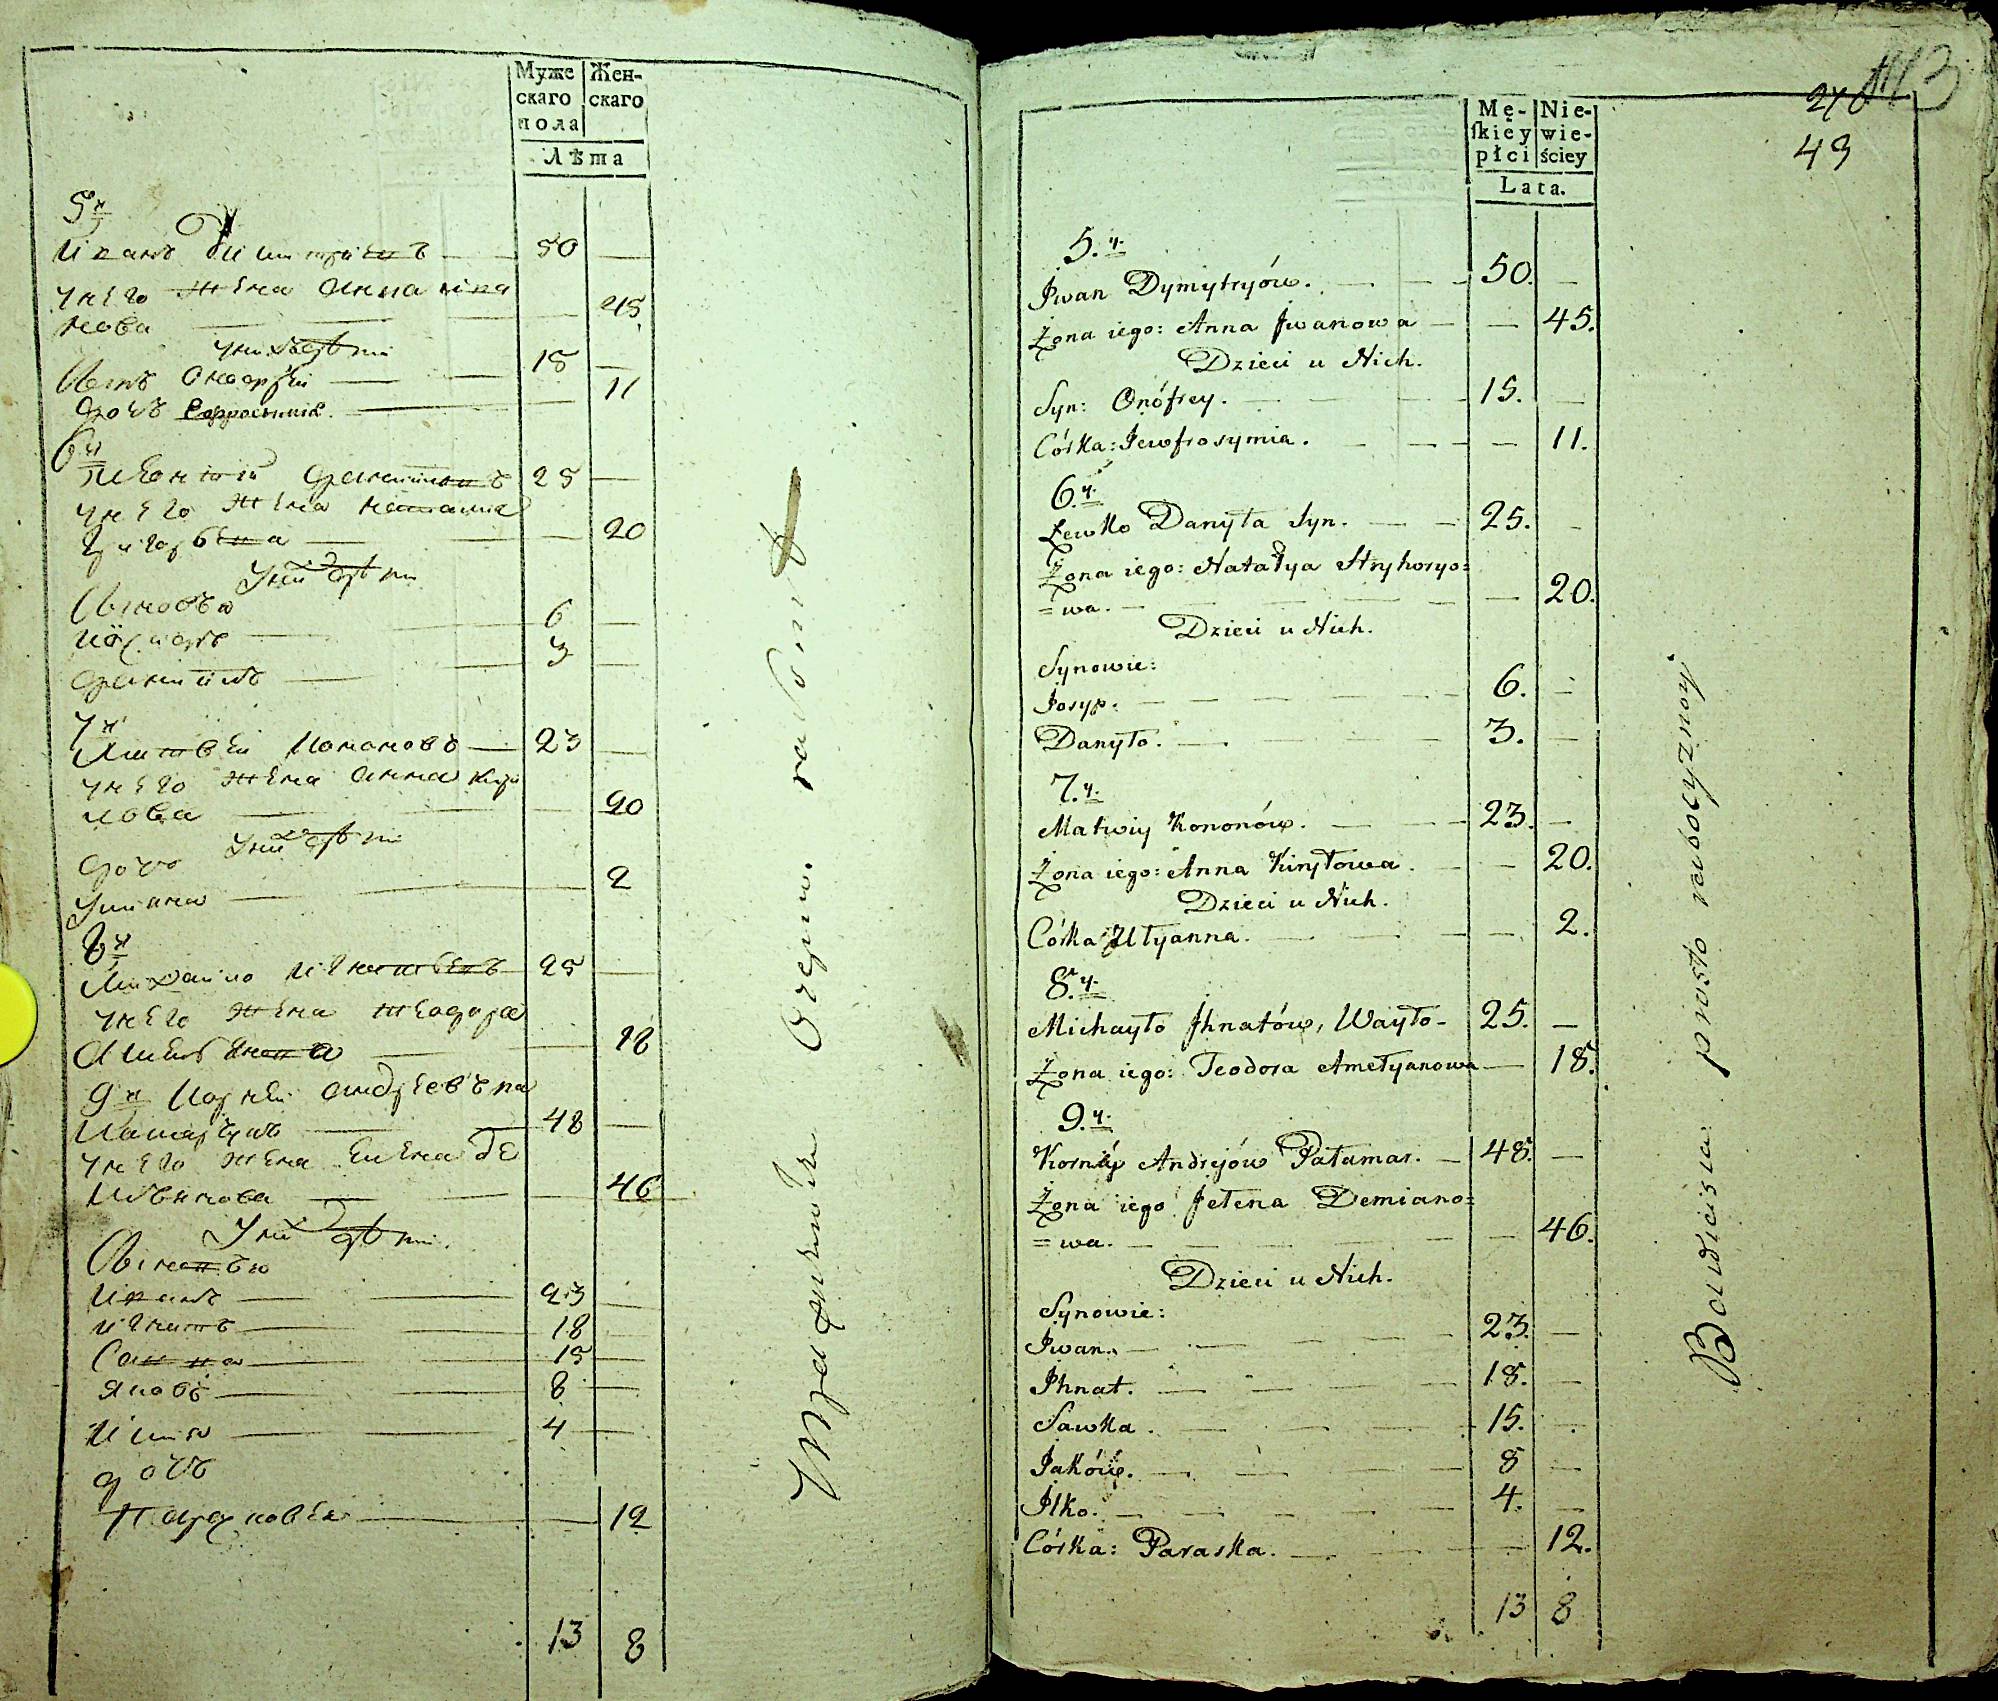 Муже
скаго
пола
Жен-
скаго
Лѣта
5
Иванъ Димитріевъ 50
у него жена Анна Ива
нова 45
у них дѣти
Сынъ Онофрій 15
дочъ Евфросинія 11
6
Леонтій Данииловъ 25
у него жена Наталия
Григорьева 20
у них дѣти
Сыновья
Іосифъ 6
Даниилъ 3
7
Матвей Кононовъ 23
у него жена Анна Кири
лова 20
у них дѣти
дочъ
Улиана 2
8
Михайло Игнатьевъ 25
у него жена Феодора
Амельянова 18
9 Корней Андреевъ па
ламаръ 48
у него жена Елена Де
миянова 46
у них дѣти
Сыновья
Иванъ 23
Игнатъ 18
Савка 15
Яковъ 8
Илия 4
дочъ
Парасковея 12
13 8
Mę-
ſkiey
płci
Nie-
wie-
ściey
Lata.
43
5.
Iwan Dymytryów. 50.
Żona iego: Anna Iwanowa 45.
Dzieci u Nich.
Syn: Onófrey. 15.
Córka: Jewfrosymia. 11.
6.
Lewko Danyła Syn. 25.
Żona iego: Natałya Hryhoryo=
=wa. 20.
Dzieci u Nich.
Synowie:
Josyp. 6.
Danyło. 3.
7.
Matwiy Kononów. 23.
Żona iego: Anna Kiryłowa. 20.
Dzieci u Nich.
Córka Ulyanna. 2.
8.
Michayło Ihnatów, Wayło- 25.
Żona iego: Teodora Amelyanowa 18.
9.
Korniy Andrejów Pałamar. 48.
Żona iego Jełena Demiano=
=wa. 46.
Dzieci u Nich.
Synowie:
Iwan. 23.
Ihnat. 18.
Sawka. 15.
Jaków. 8
Ilko. 4.
Córka: Paraska. 12.
13 8